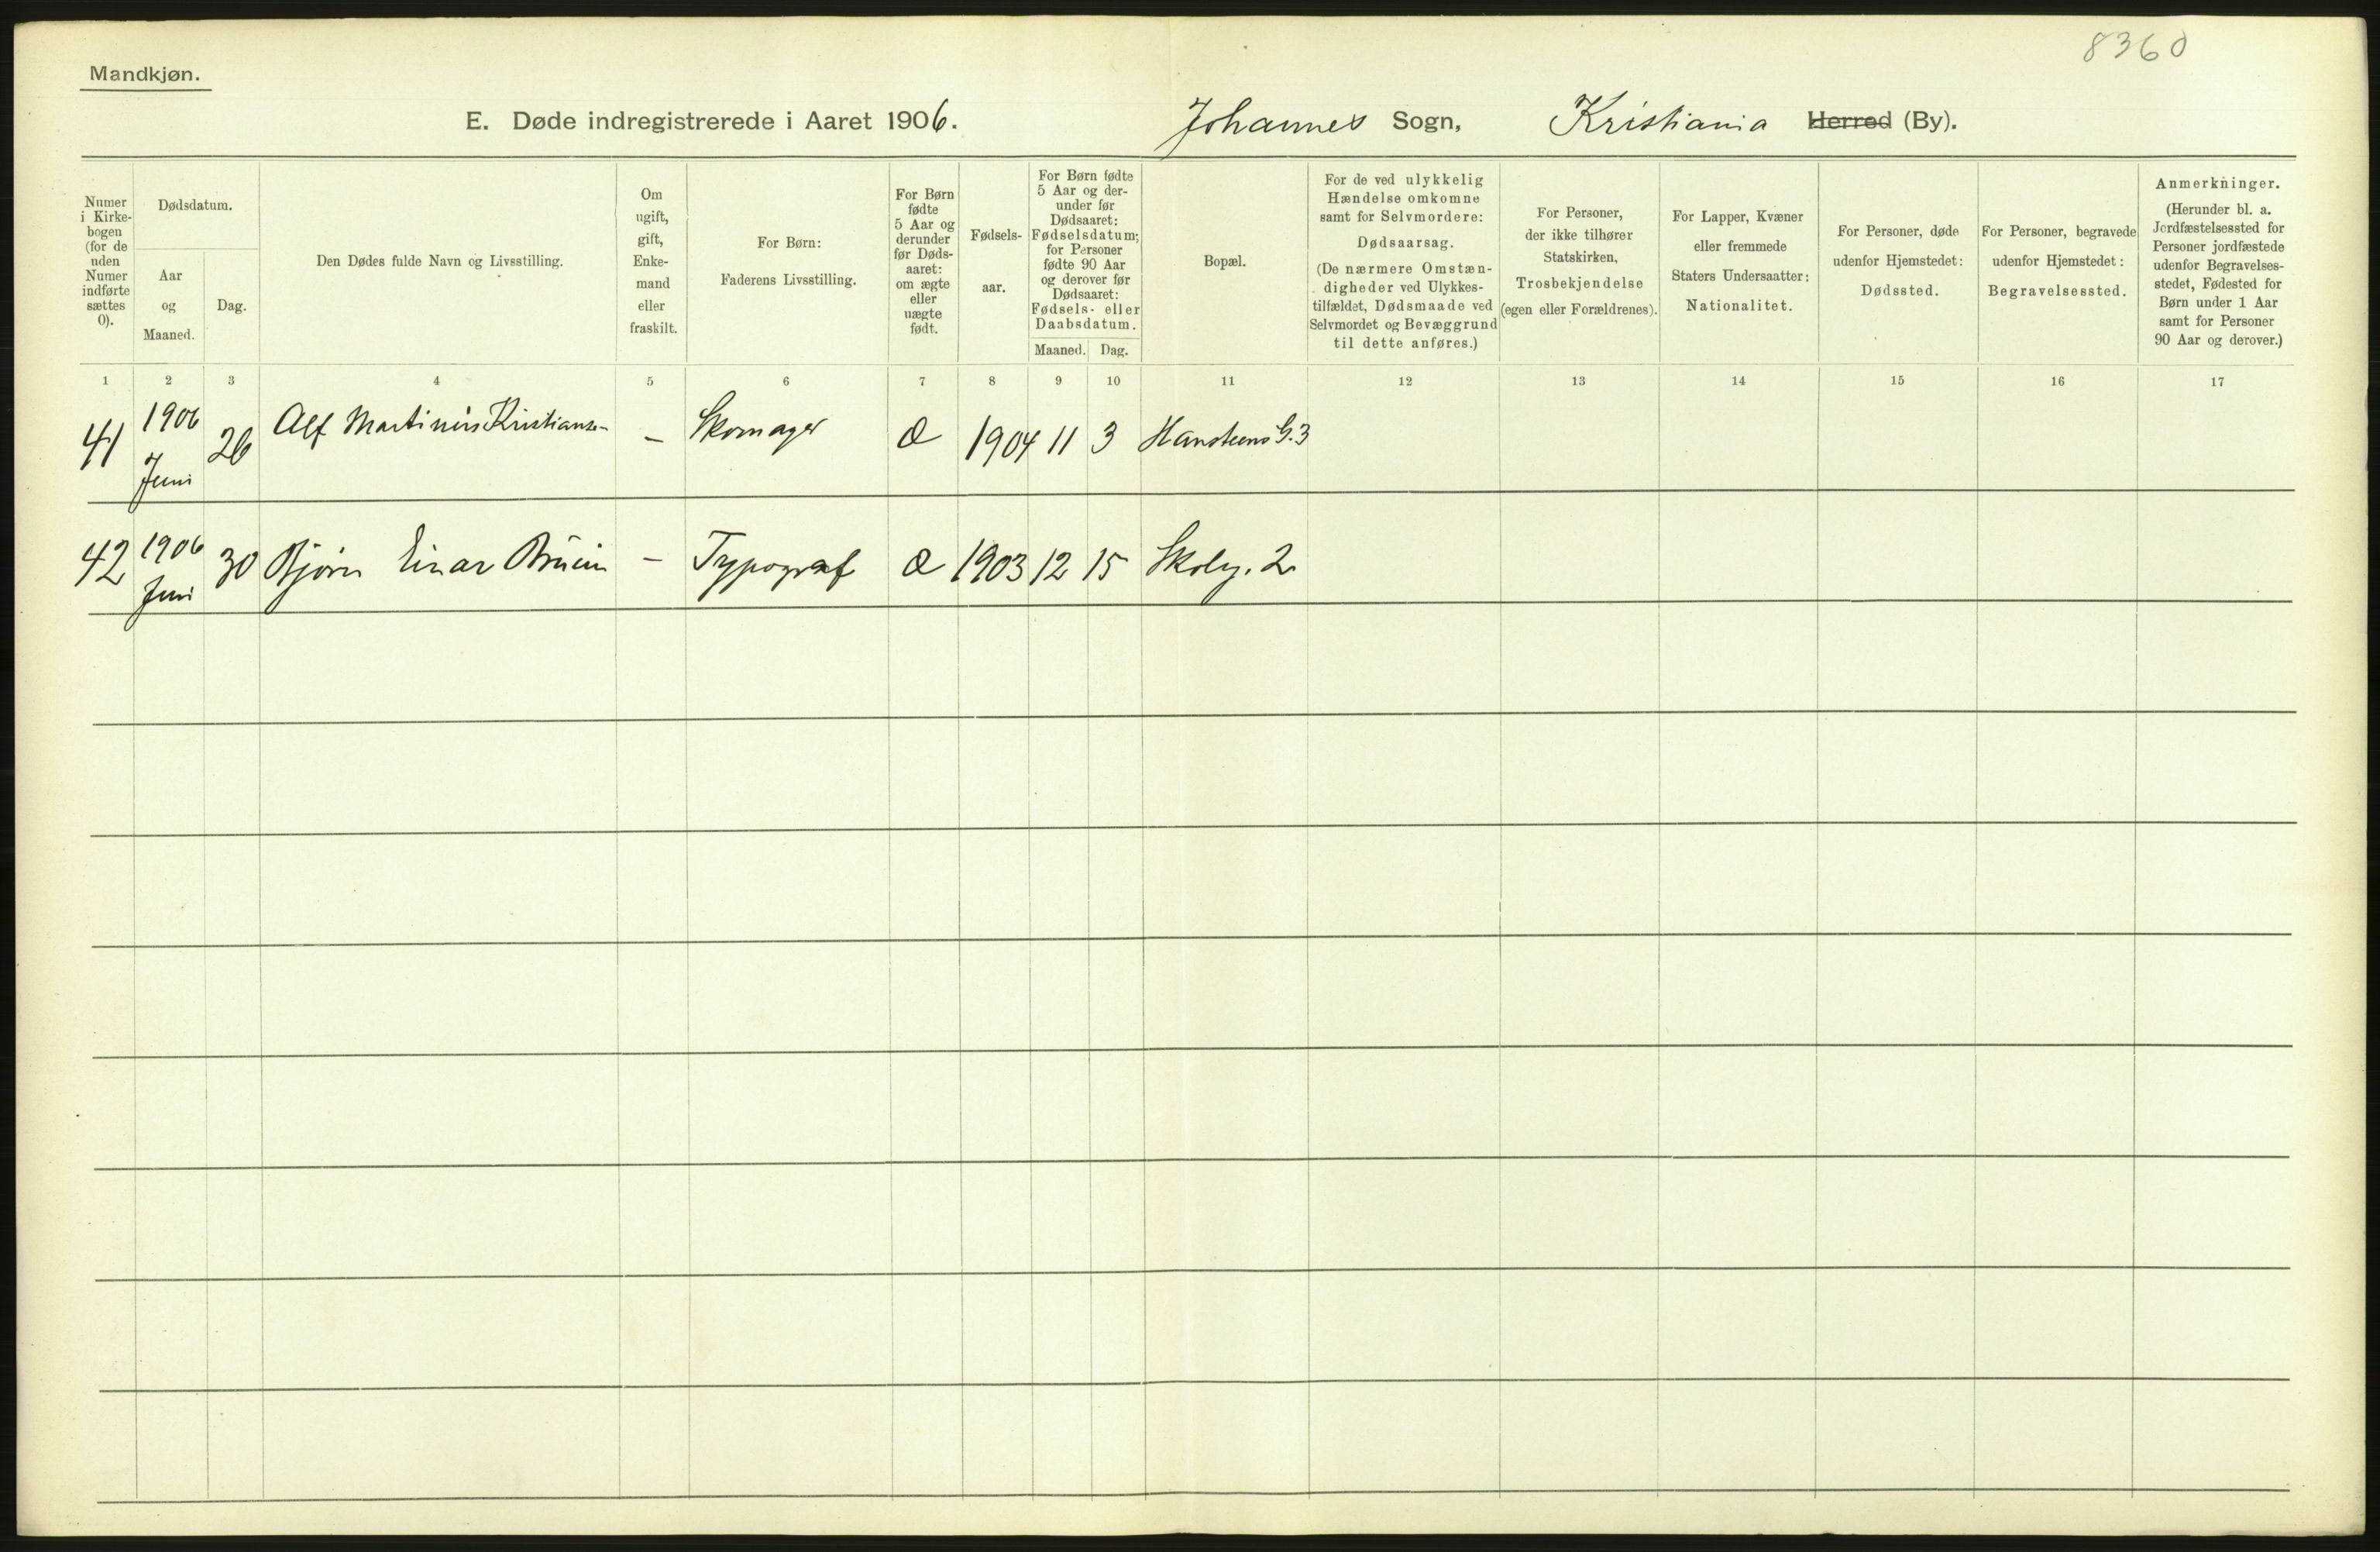 8360
Mandkjøn.
E. Døde indregistrerede i Aaret 1906. Johannes Sogn, Kristiania Herred (By).
Numer i Kirkebogen (for de uden Numer indførte sættes 0).
Dødsdatum.
Aar og Maaned.
Dag.
Den Dødes fulde Navn og Livsstilling.
Om ugift, gift, Enkemand eller fraskilt.
For Børn: Faderens Livsstilling.
For Børn fødte 5 Aar og derunder før Dødsaaret: om ægte eller uægte født.
Fødselsaar.
For Børn fødte 5 Aar og derunder før Dødsaaret: Fødselsdatum; for Personer fødte 90 Aar og derover før Dødsaaret: Fødsels- eller Daabsdatum.
Maaned. Dag.
Bopæl.
For de ved ulykkelig Hændelse omkomne samt for Selvmordere: Dødsaarsag. (De nærmere Omstændigheder ved Ulykkestilfældet, Dødsmaade ved Selvmordet og Bevæggrund til dette anføres.)
For Personer, der ikke tilhører Statskirken, Trosbekjendelse (egen eller Forældrenes).
For Lapper, Kvæner eller fremmede Staters Undersaatter: Nationalitet.
For Personer, døde udenfor Hjemstedet: Dødssted.
For Personer, begravede udenfor Hjemstedet: Begravelsessted.
Anmerkninger. (Herunder bl. a. Jordfæstelsessted for Personer jordfæstede udenfor Begravelsesstedet, Fødested for Børn under 1 Aar samt for Personer 90 Aar og derover.)
1 2 3 4 5 6 7 8 9 10 11 12 13 14 15 16 17
41 1906 Juni 26 Alf Martinius Kristiansen - Skomager 1904 11 3 Hansteens G. 3
42 1906 Juni 30 Bjørn Einar - Typograf 1903 12 15 Skolg. 2